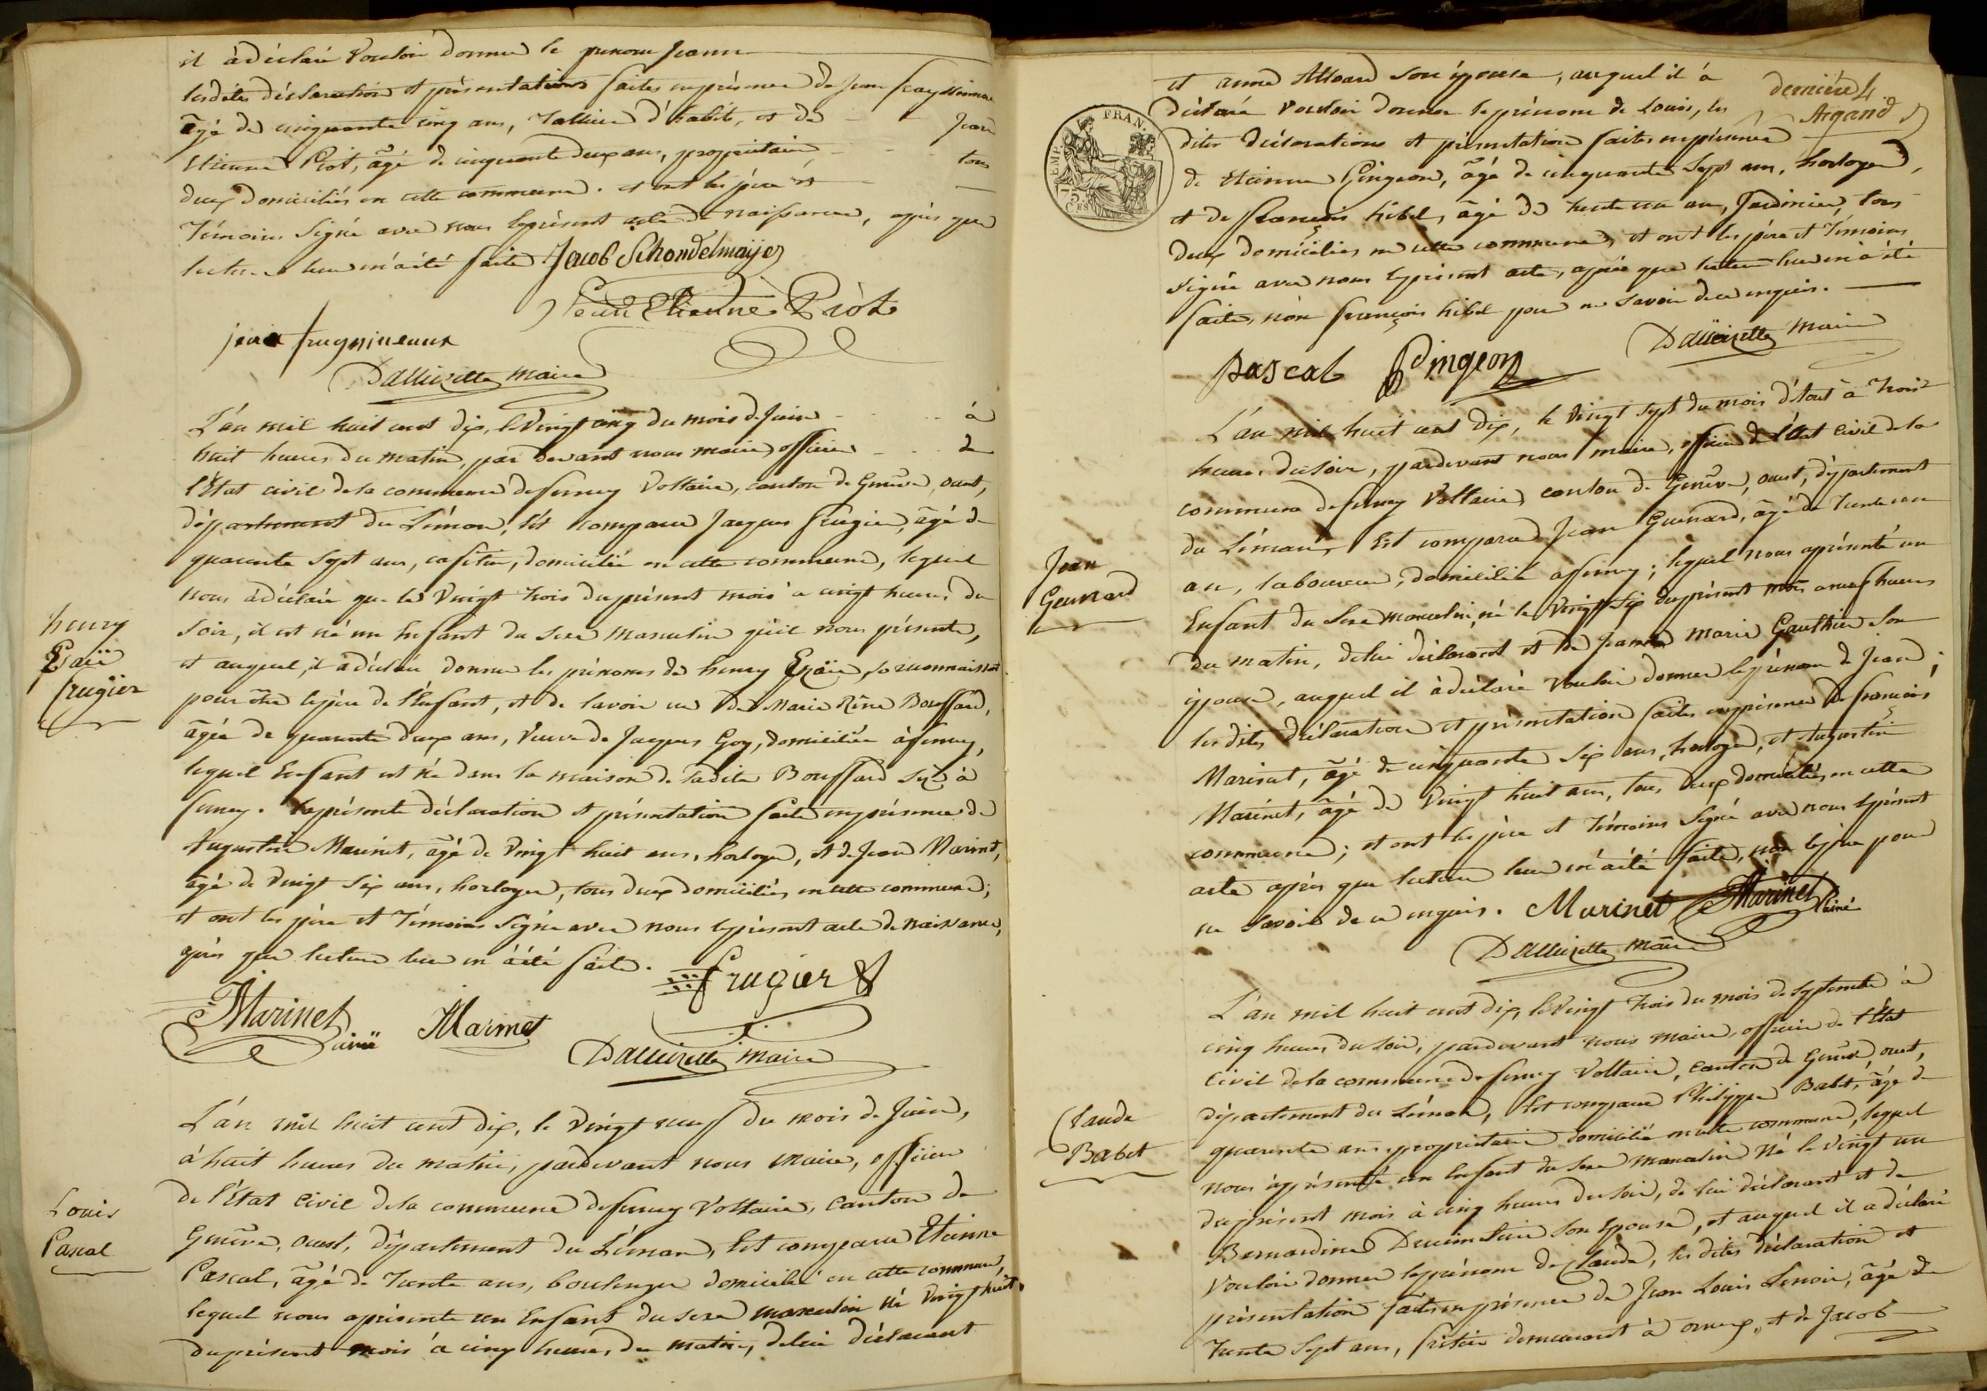 il à déclaré Vouloir donner le prenom Jeanne
lesdites déclaration et présentations faites en présence de Jean
âgé de cinquante cinq ans, Tailleur d'habits, et de Jean
Etienne Piot, âgé de cinquante deux ans, propriétaire tous
deux domiciliés en cette commune. et ont les père et
Témoins Signé avec nous le présent acte de naissance, après que
lecture leur en à été faite Jacob Schondelmaÿer
Jean Etienne Piot
Dallizette maire
L'an mil huit cent dix, le Vingt cinq du mois de Juin à
huit heures du matin, par devant nous maire officier de
l'État civil de la commune de ferney Voltaire, canton de Genève, ouest,
département du Léman, Est comparu Jacques frugier, âgé de
quarante sept ans, domicilié en cette commune, lequel
nous à déclaré que le Vingt trois du présent mois à onze heures du
soir, il est né un Enfant du sexe masculin qu'il nous présente,
et auquel, il à déclaré donner les prénoms de henry
henry
frugier
pour être le père de l'Enfant, et de l'avoir eu de Marie Bouffard,
âgée de quarante deux ans, Veuve de Jacques Goy, domiciliée à ferney,
lequel Enfant est né dans la maison de ladite Bouffard à
ferney. le présente déclaration et présentation faite en présence de
Augustin Marinet, âgé de Vingt huit ans, horloger, et de Jean Marinet,
âgé de Vingt Six ans, horloger, tous deux domiciliés en cette commune;
et ont les père et Témoins Signé avec nous le présent acte de naissance,
après que lecture leur en à été faite. frugier
Marinet Marinet
Dallizette maire
L'an mil huit cent dix, le Vingt neuf du mois de Juin,
à huit heures du matin, pardevant nous Maire, officier
de l'État civil de la commune de ferney Voltaire, canton de
Louis
Pascal
Genève, ouest, département du Léman, Est comparu Etienne
Pascal, âgé de Trente ans, boulanger domicilié en cette commune,
lequel nous à présenté un Enfant du sexe masculin né Vingt huit
du présent mois à cinq heures du matin, de lui déclarant
dernière 4
Argand
et anne Alloard son épouse, auquel il à
déclaré Vouloir donner le prénom de Louis, les
dites déclarations et présentation faites en présence
de Etienne Pingeon, âgé de cinquante Sept ans, horloger,
et de françois hibel, âgé de trente un ans, Jardinier, tous
deux domiciliés en cette commune, et ont les père et Témoins
Signé avec nous le présent acte, après que lecture leur en à été
faite, non françois hibel pour ne Savoir de ce enquis.
Pascal Pingeon Dallizette Maire
FRAN.
L'an mil huit cent dix, le Vingt Sept du mois d'Aout à Trois
heures du Soir, pardevant nous maire, officier de l'État civil de la
commune de ferney Voltaire canton de Genève, ouest, département
du Léman, Est comparu Jean Guenard, âgé de Trente un
Jean
Guenard
an, laboureur, domicilié à ferney; lequel nous à présenté un
Enfant du Sexe masculin, né le Vingt Six du présent mois à neuf heures
du matin, de lui déclarant et de Jeanne Marie Gauthier Son
épouse, auquel il à déclaré Vouloir donner le prénom de Jean;
les dites déclaration et présentation faites en présence de françois
Marinet, âgé de cinquante Six ans, horloger, et Augustin
Marinet, âgé de Vingt huit ans, tous deux domiciliés en cette
commune; et ont les père et Témoins Signé avec nous le présent
acte après que lecture leur en à été faite, non le père pour
ne Savoir de ce enquis. Marinet Marinet
Dallizette maire
L'an mil huit cent dix, le Vingt trois du mois de Septembre à
cinq heures du Soir, pardevant nous maire, officier de l'État
civil de la commune de ferney Voltaire, canton de Genève, ouest,
département du Léman, Est comparu Philippe Babet, âgé de
Claude
Babet
quarante ans, propriétaire domicilié en cette commune, lequel
nous à présenté un Enfant du Sexe Masculin Né le Vingt un
du présent mois à cinq heures du soir, de lui déclarant et de
Bernardine Son Epouse, et auquel il a déclaré
Vouloir donner le prénom de Claude, les dites déclaration et
présentation faites en présence de Jean Louis Lenoir, âgé de
Trente Sept ans, demeurant à ornex, et de Jacob